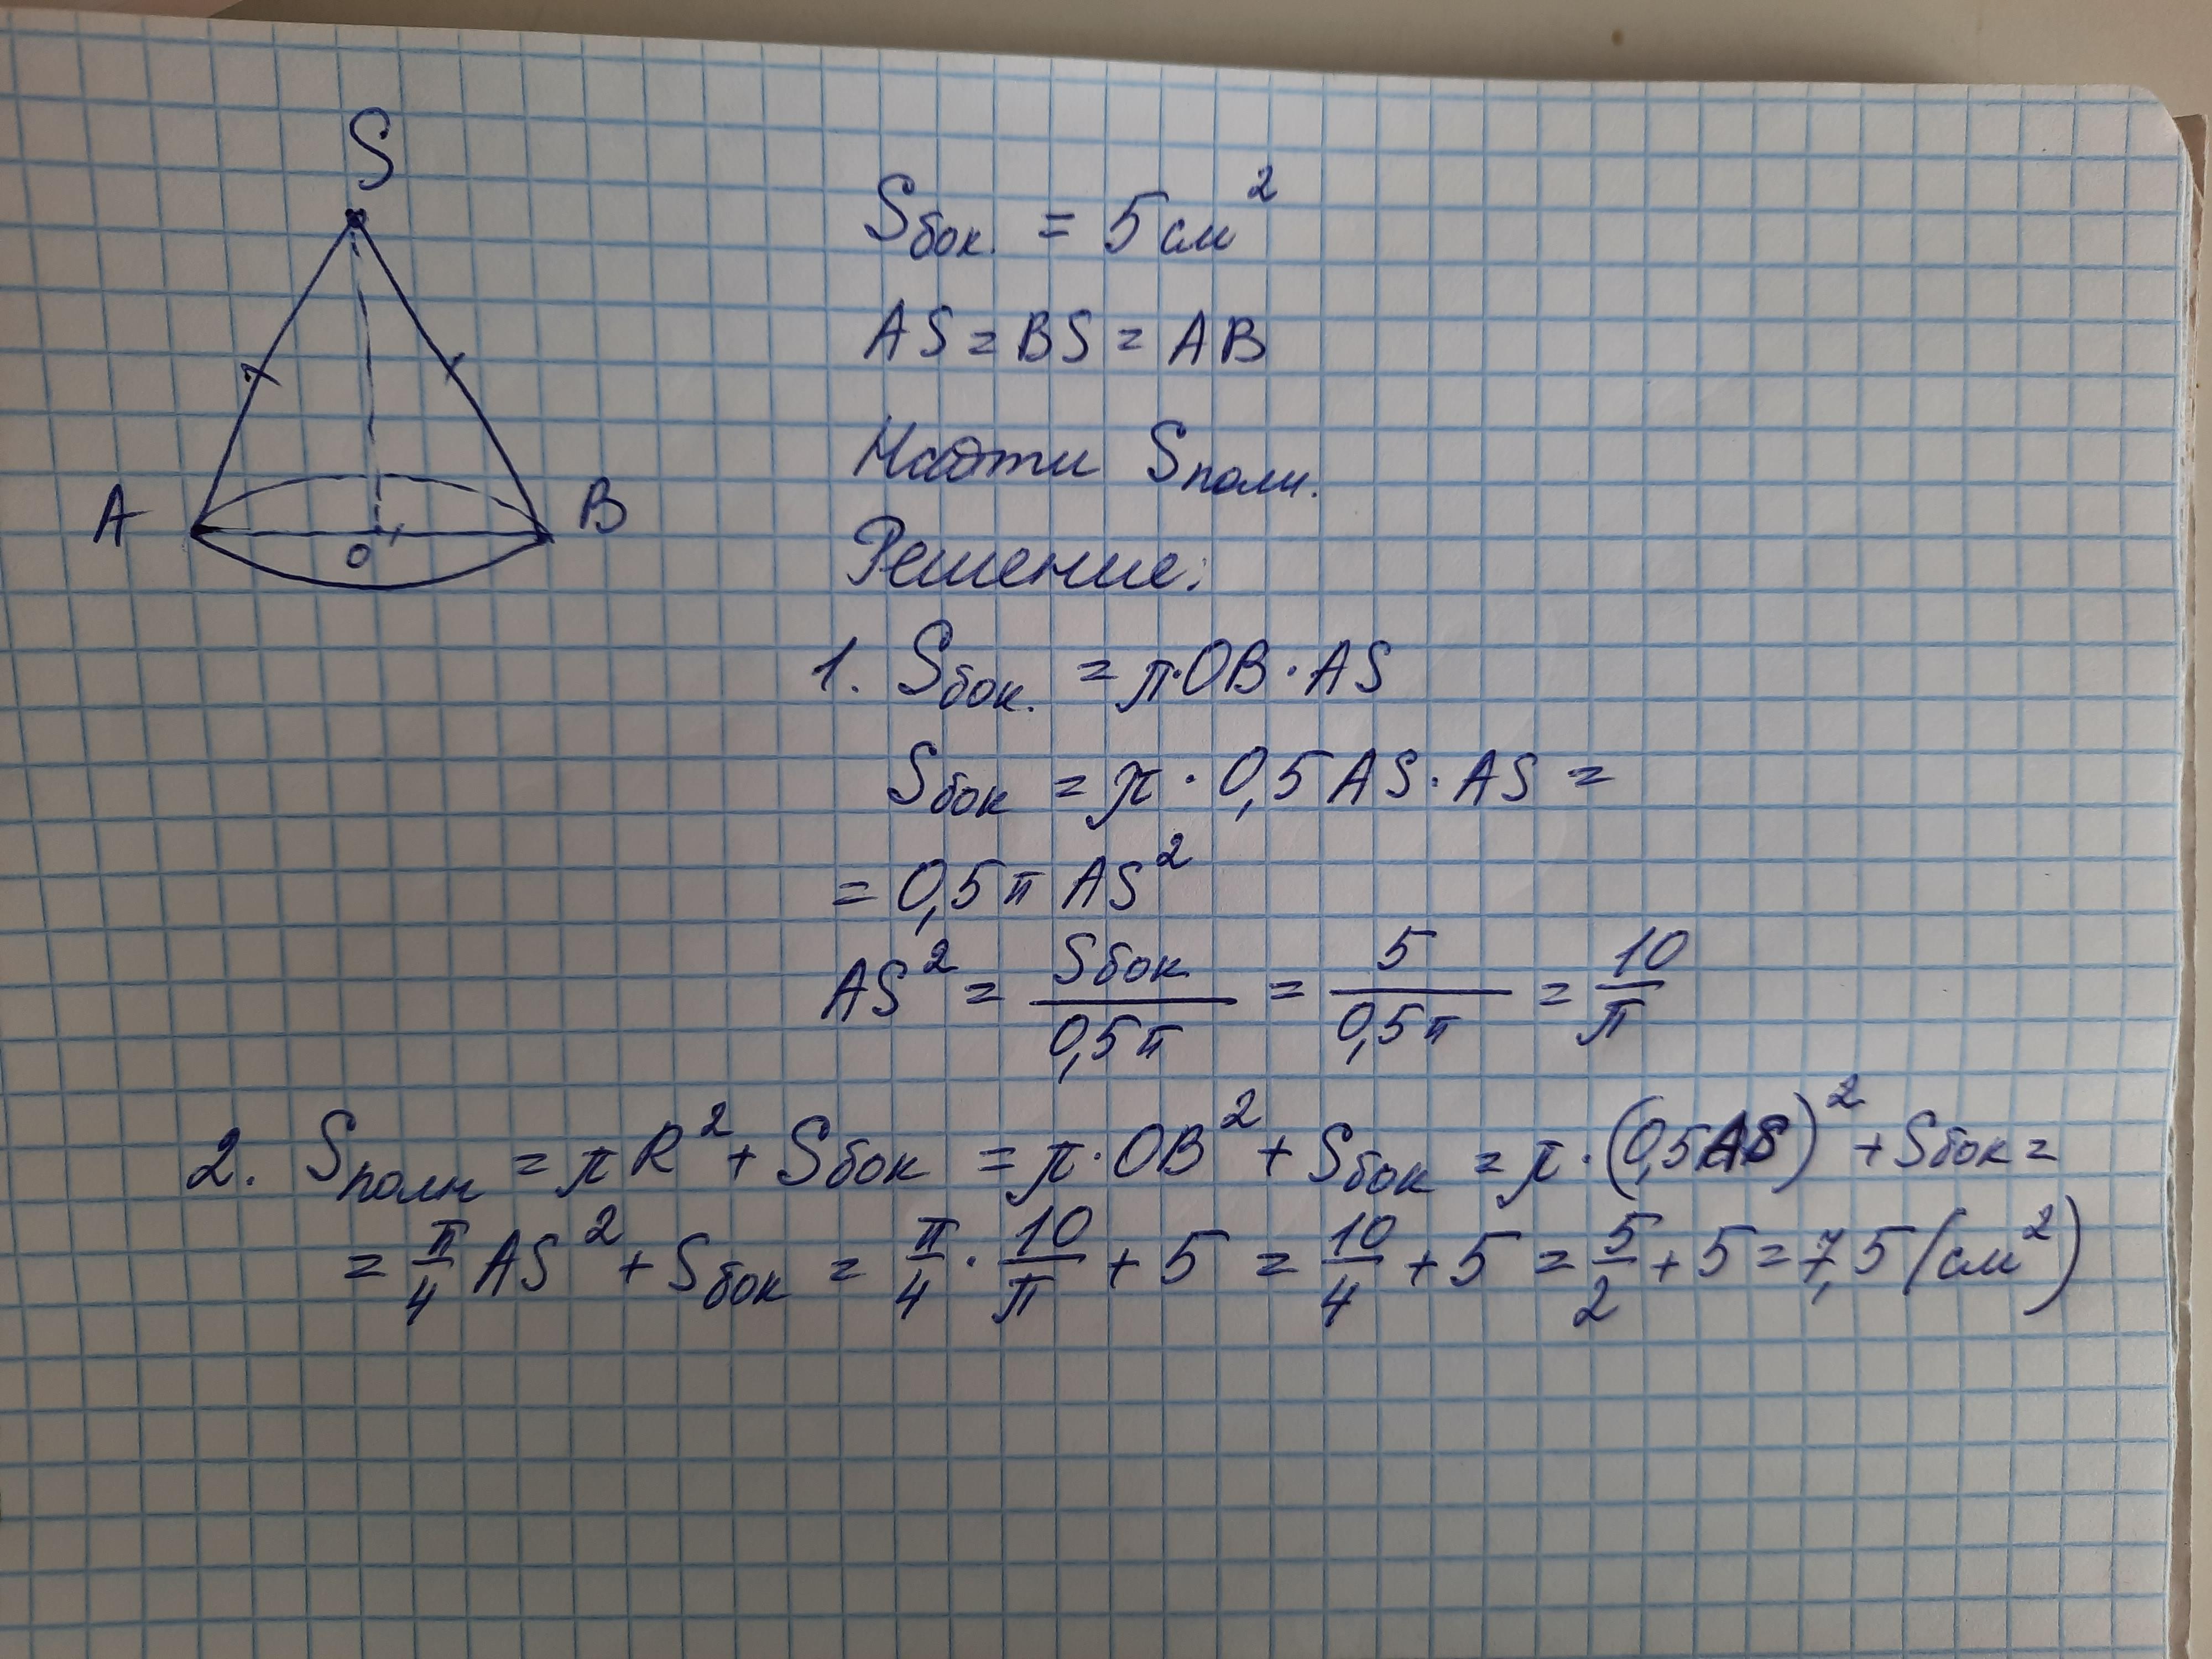 S
A
B
O
Sбок. = 5 см²
AS = BS = AB
Найти Sполн.
Решение:
1. Sбок. = π·OB·AS
Sбок = π · 0,5 AS · AS =
= 0,5π AS²
AS² = Sбок / 0,5π = 5 / 0,5π = 10 / π
2. Sполн = πR² + Sбок = π·OB² + Sбок = π·(0,5AS)² + Sбок =
= π/4 AS² + Sбок = π/4 · 10/π + 5 = 10/4 + 5 = 5/2 + 5 = 7,5 (см²)